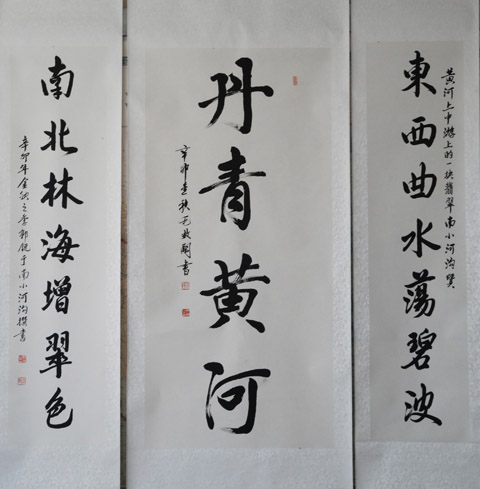 黄河上中游上的一块翡翠南小河沟赞
東西曲水蕩碧波
丹青黄河
南北林海增翠色
辛卯年金秋之季郭锐于南小河沟撰書